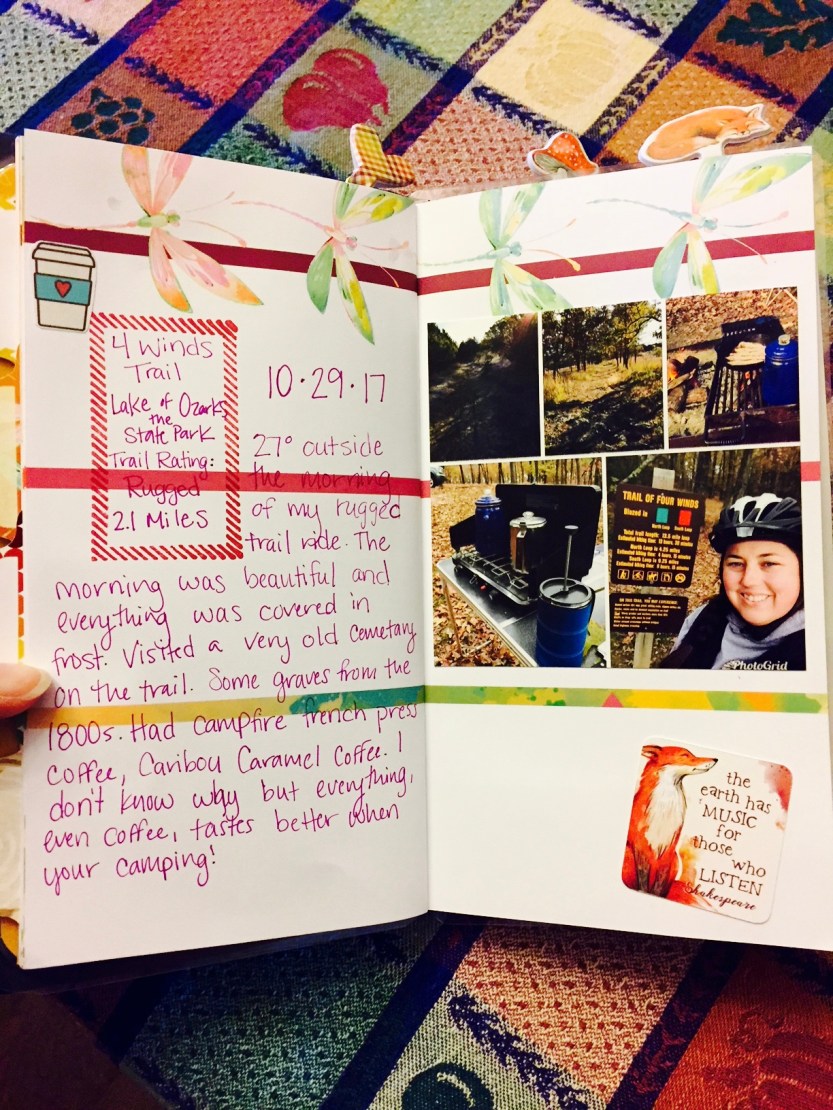 4 Winds
Trail
Lake of the Ozarks
State Park
Trail Rating:
Rugged
2.1 Miles
10·29·17
27° outside
the morning
of my rugged
trail ride. The
morning was beautiful and
everything was covered in
frost. Visited a very old cemetary
on the trail. Some graves from the
1800s. Had campfire french press
coffee, Caribou Caramel Coffee. I
don't know why but everything,
even coffee, tastes better when
your camping!
TRAIL OF FOUR WINDS
Blazed in
North Loop
South Loop
Total trail length: 13.5 mile loop
North Loop is 4.25 miles
PhotoGrid
the
earth has
MUSIC
for
those
who
LISTEN
Shakespeare